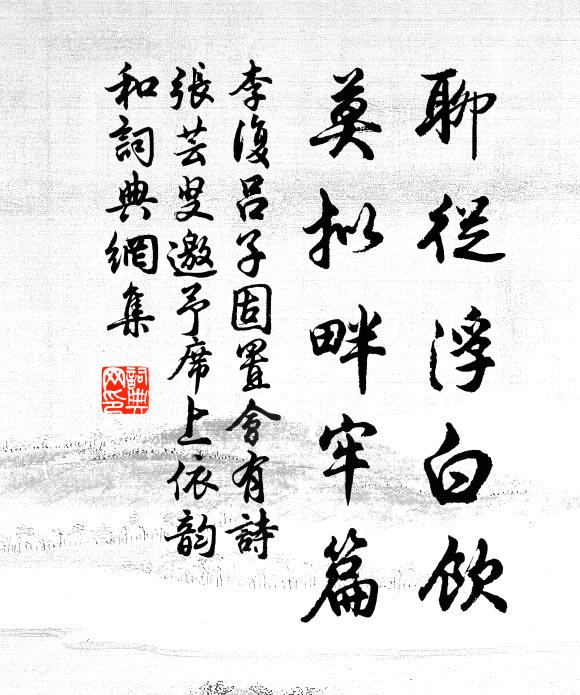 聊從浮白飲
莫擬畔牢篇
李復呂子固置會有詩
張芸叟邀予席上依韵
和詞典網集
詞典
网印